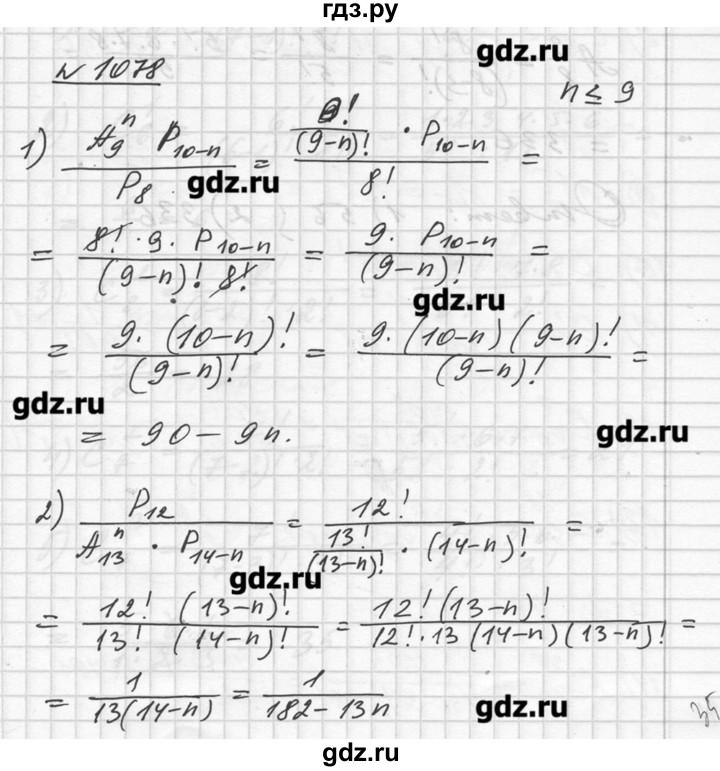 гдз.ру
gdz.ru
№ 1078
n ≤ 9
1) (A_9^n P_{10-n}) / P_8 = (9! / (9-n)! · P_{10-n}) / 8! =
gdz.ru
= (8! · 9 · P_{10-n}) / ((9-n)! 8!) = (9 · P_{10-n}) / (9-n)! =
gdz.ru
= (9 · (10-n)!) / (9-n)! = (9 · (10-n)(9-n)!) / (9-n)! =
gdz.ru
= 90 - 9n.
gdz.ru
2) P_12 / (A_13^n · P_{14-n}) = 12! / (13! / (13-n)! · (14-n)!) =
gdz.ru
= (12! (13-n)!) / (13! (14-n)!) = (12! (13-n)!) / (12! · 13 (14-n)(13-n)!) =
= 1 / (13(14-n)) = 1 / (182-13n)
gdz.ru
gdz.ru